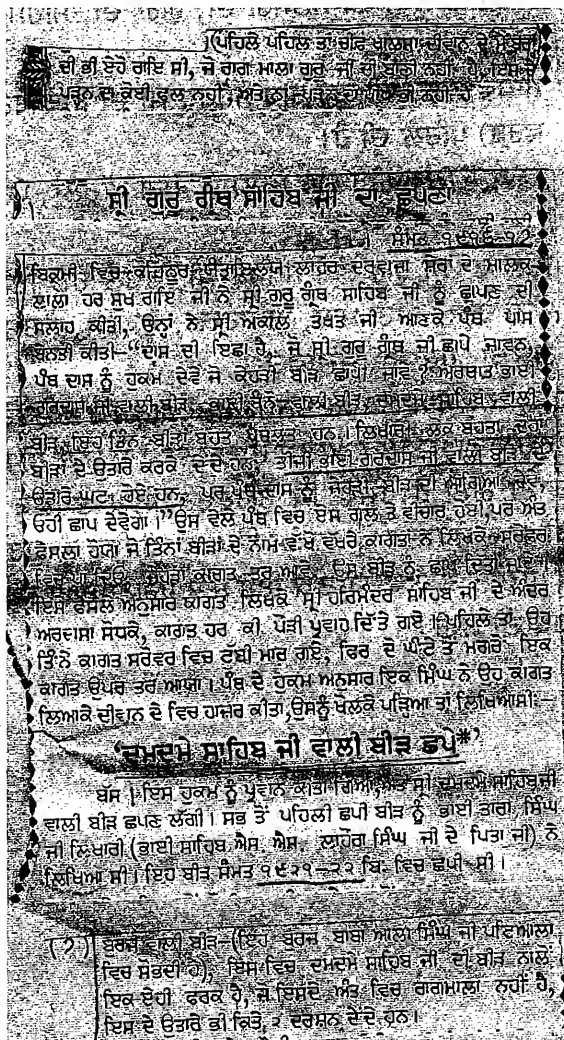 (ਪਹਿਲੇ ਪਹਿਲ ਤਾਂ ਚੀਫ ਖਾਲਸਾ ਦੀਵਾਨ ਦੇ ਮੈਂਬਰਾਂ
ਦੀ ਭੀ ਏਹੋ ਰਾਇ ਸੀ, ਜੋ ਰਾਗ ਮਾਲਾ ਗੁਰੂ ਜੀ ਦੀ ਬਾਣੀ ਨਹੀਂ ਹੈ, ਇਸ ਦੇ
ਪੜ੍ਹਨ ਦਾ ਕੋਈ ਫਲ ਨਹੀਂ, ਅਤੇ ਨਾਂ ਪੜ੍ਹਨ ਦਾ ਭੀ ਨਹੀਂ ਹੈ
ਸ੍ਰੀ ਗੁਰੂ ਗ੍ਰੰਥ ਸਾਹਿਬ ਜੀ ਦਾ ਛਪਣਾ
ਸੰਮਤ ੧੯੨੧-੨੨
ਬਿਕ੍ਰਮੀ ਵਿਚ ਕੋਹਿਨੂਰ ਯੰਤ੍ਰਾਲਿਯ ਲਾਹੌਰ ਦਰਵਾਜ਼ਾ ਸ਼ੇਰਾਂ ਦੇ ਮਾਲਕ
ਲਾਲਾ ਹਰ ਸੁਖ ਰਾਇ ਜੀ ਨੇ ਸ੍ਰੀ ਗੁਰੂ ਗ੍ਰੰਥ ਸਾਹਿਬ ਜੀ ਨੂੰ ਛਾਪਣ ਦੀ
ਸਲਾਹ ਕੀਤੀ, ਉਨ੍ਹਾਂ ਨੇ ਸ੍ਰੀ ਅਕਾਲ ਤਖਤ ਜੀ ਆਣਕੇ ਪੰਥ ਪਾਸ
ਬੇਨਤੀ ਕੀਤੀ–“ਦਾਸ ਦੀ ਇਛਾ ਹੈ, ਜੋ ਸ੍ਰੀ ਗੁਰੂ ਗ੍ਰੰਥ ਜੀ ਛਾਪੇ ਜਾਵਨ,
ਪੰਥ ਦਾਸ ਨੂੰ ਹੁਕਮ ਦੇਵੇ ਜੋ ਕੇਹੜੀ ਬੀੜ ਛਾਪੀ ਜਾਵੇ ? ਅਰਥਾਤ ਭਾਈ
ਗੁਰਦਾਸ ਜੀ ਵਾਲੀ ਬੀੜ, ਭਾਈ ਬੰਨੋ ਵਾਲੀ ਬੀੜ, ਦਮਦਮੇ ਸਾਹਿਬ ਵਾਲੀ
ਬੀੜ, ਇਹ ਤਿੰਨ ਬੀੜਾਂ ਬਹੁਤ ਪ੍ਰਚਲਤ ਹਨ । ਲਿਖਾਰੀ ਲੋਕ ਬਹੁਤਾ ਦੋਹਾਂ
ਬੀੜਾਂ ਦੇ ਉਤਾਰੇ ਕਰਕੇ ਦੇਂਦੇ ਹਨ, ਤੀਜੀ ਭਾਈ ਗੁਰਦਾਸ ਜੀ ਵਾਲੀ ਬੀੜ ਦੇ
ਉਤਾਰੇ ਘਟ ਹੋਏ ਹਨ, ਪਰ ਪੰਥ ਦਾਸ ਨੂੰ ਜੇਹੜੀ ਬੀੜ ਦੀ ਆਗਿਆ ਦੇਵੇ,
ਓਹੀ ਛਾਪ ਦੇਵੇਗਾ ।”ਉਸ ਵੇਲੇ ਪੰਥ ਵਿਚ ਏਸ ਗਲ ਤੇ ਵੀਚਾਰ ਹੋਈ,ਪਰ ਅੰਤ
ਫੈਸਲਾ ਹੋਯਾ ਜੋ ਤਿੰਨਾਂ ਬੀੜਾਂ ਦੇ ਨਾਮ ਵੱਖ ਵਖਰੇ ਕਾਗਤਾਂ ਤੇ ਲਿਖਕੇ ਸਰੋਵਰ
ਵਿਚ ਜੇਹੜਾ ਕਾਗਤ ਤਰ ਆਵੇ, ਉਸ ਬੀੜ ਨੂੰ ਛਾਪ ਦਿਤਾ ਜਾਵੇ ।
ਇਸ ਫੈਸਲੇ ਅਨੁਸਾਰ ਕਾਗਤ ਲਿਖਕੇ ਸ੍ਰੀ ਹਰਿਮੰਦਰ ਸਾਹਿਬ ਜੀ ਦੇ ਅੰਦਰ
ਅਰਦਾਸਾ ਸੋਧਕੇ, ਕਾਗਤ ਹਰ ਕੀ ਪੌੜੀ ਪ੍ਰਵਾਹ ਦਿੱਤੇ ਗਏ । ਪਹਿਲੇ ਤਾਂ ਉਹ
ਤਿੰਨੇ ਕਾਗਤ ਸਰੋਵਰ ਵਿਚ ਟੁੱਬੀ ਮਾਰ ਗਏ, ਫਿਰ ਦੋ ਘੰਟੇ ਤੋਂ ਮਗਰੋਂ ਇਕ
ਕਾਗਤ ਉਪਰ ਤਰ ਆਯਾ । ਪੰਥ ਦੇ ਹੁਕਮ ਅਨੁਸਾਰ ਇਕ ਸਿੰਘ ਨੇ ਉਹ ਕਾਗਤ
ਲਿਆਕੇ ਦੀਵਾਨ ਦੇ ਵਿਚ ਹਾਜ਼ਰ ਕੀਤਾ,ਉਸਨੂੰ ਖੋਲਕੇ ਪੜਿਆ ਤਾਂ ਲਿਖਿਆਸੀ:–
‘ਦਮਦਮੇ ਸਾਹਿਬ ਜੀ ਵਾਲੀ ਬੀੜ ਛਪੇ*’
ਬੱਸ । ਇਸ ਹੁਕਮ ਨੂੰ ਪ੍ਰਵਾਨ ਕੀਤਾ ਗਿਆ,ਅਤੇ ਸ੍ਰੀ ਦਮਦਮੇ ਸਾਹਿਬਜੀ
ਵਾਲੀ ਬੀੜ ਛਪਣ ਲੱਗੀ । ਸਭ ਤੋਂ ਪਹਿਲੀ ਛਪੀ ਬੀੜ ਨੂੰ ਭਾਈ ਤਾਰਾ ਸਿੰਘ
ਜੀ ਲਿਖਾਰੀ (ਭਾਈ ਸਾਹਿਬ ਐਸ. ਐਸ. ਲਾਹੌਰਾ ਸਿੰਘ ਜੀ ਦੇ ਪਿਤਾ ਜੀ) ਨੇ
ਲਿਖਿਆ ਸੀ । ਇਹ ਬੀੜ ਸੰਮਤ ੧੯੨੧–੨੨ ਬਿ. ਵਿਚ ਛਪੀ ਸੀ ।
ਬੁਰਜ ਵਾਲੀ ਬੀੜ–(ਇਹ ਬੁਰਜ ਬਾਬਾ ਆਲਾ ਸਿੰਘ ਜੀ ਪਟਿਆਲਾ
ਵਿਚ ਸੋਭਦੀ ਹੈ), ਇਸ ਵਿਚ ਦਮਦਮੇ ਸਾਹਿਬ ਜੀ ਦੀ ਬੀੜ ਨਾਲੋਂ
ਇਕ ਏਹੀ ਫਰਕ ਹੈ, ਜੋ ਇਸਦੇ ਅੰਤ ਵਿਚ ਰਾਗਮਾਲਾ ਨਹੀਂ ਹੈ,
ਇਸ ਦੇ ਉਤਾਰੇ ਭੀ ਕਿਤੇ, ੨ ਦਰਸ਼ਨ ਦੇਂਦੇ ਹਨ ।